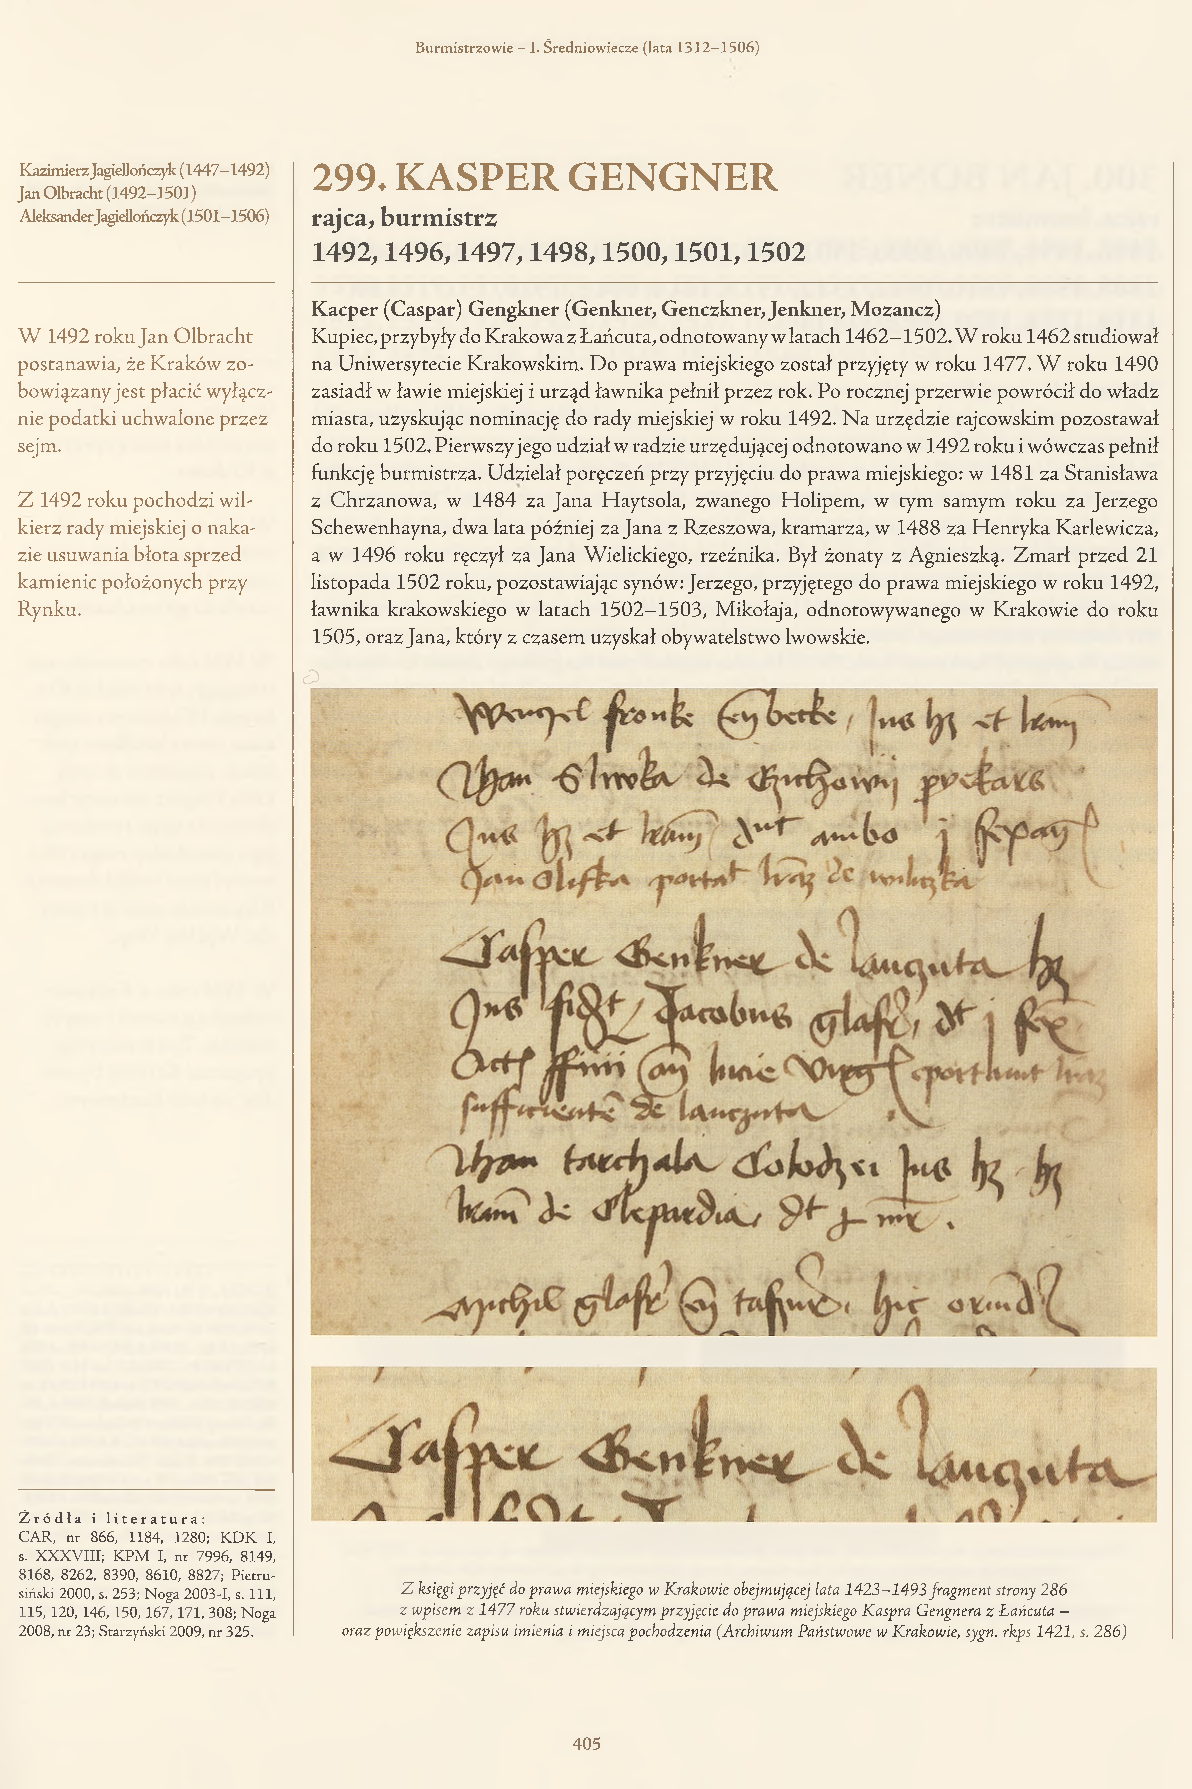 Burmistrzowie – I. Średniowiecze (lata 1312–1506)
Kazimierz Jagiellończyk (1447–1492)
Jan Olbracht (1492–1501)
Aleksander Jagiellończyk (1501–1506)
W 1492 roku Jan Olbracht
postanawia, że Kraków zo-
bowiązany jest płacić wyłącz-
nie podatki uchwalone przez
sejm.
Z 1492 roku pochodzi wil-
kierz rady miejskiej o naka-
zie usuwania błota sprzed
kamienic położonych przy
Rynku.
Źródła i literatura:
CAR, nr 866, 1184, 1280; KDK I,
s. XXXVIII; KPM I, nr 7996, 8149,
8168, 8262, 8390, 8610, 8827; Pietru-
siński 2000, s. 253; Noga 2003-I, s. 111,
115, 120, 146, 150, 167, 171, 308; Noga
2008, nr 23; Starzyński 2009, nr 325.
299. KASPER GENGNER
rajca, burmistrz
1492, 1496, 1497, 1498, 1500, 1501, 1502
Kacper (Caspar) Gengkner (Genkner, Genczkner, Jenkner, Mozancz)
Kupiec, przybyły do Krakowa z Łańcuta, odnotowany w latach 1462–1502. W roku 1462 studiował
na Uniwersytecie Krakowskim. Do prawa miejskiego został przyjęty w roku 1477. W roku 1490
zasiadł w ławie miejskiej i urząd ławnika pełnił przez rok. Po rocznej przerwie powrócił do władz
miasta, uzyskując nominację do rady miejskiej w roku 1492. Na urzędzie rajcowskim pozostawał
do roku 1502. Pierwszy jego udział w radzie urzędującej odnotowano w 1492 roku i wówczas pełnił
funkcję burmistrza. Udzielał poręczeń przy przyjęciu do prawa miejskiego: w 1481 za Stanisława
z Chrzanowa, w 1484 za Jana Haytsola, zwanego Holipem, w tym samym roku za Jerzego
Schewenhayna, dwa lata później za Jana z Rzeszowa, kramarza, w 1488 za Henryka Karlewicza,
a w 1496 roku ręczył za Jana Wielickiego, rzeźnika. Był żonaty z Agnieszką. Zmarł przed 21
listopada 1502 roku, pozostawiając synów: Jerzego, przyjętego do prawa miejskiego w roku 1492,
ławnika krakowskiego w latach 1502–1503, Mikołaja, odnotowywanego w Krakowie do roku
1505, oraz Jana, który z czasem uzyskał obywatelstwo lwowskie.
Wenzel fronke et
Sliwka de
Jus et ambo j
Jan de
Casper Genkner de lanczuta
Jus Jacobus j
lucie
de lanczuta
tarchala Jus
de Clepardia
Michil hic
Casper Genkner de lanczuta
Z księgi przyjęć do prawa miejskiego w Krakowie obejmującej lata 1423–1493 fragment strony 286
z wpisem z 1477 roku stwierdzającym przyjęcie do prawa miejskiego Kaspra Gengnera z Łańcuta –
oraz powiększenie zapisu imienia i miejsca pochodzenia (Archiwum Państwowe w Krakowie, sygn. rkps 1421, s. 286)
405